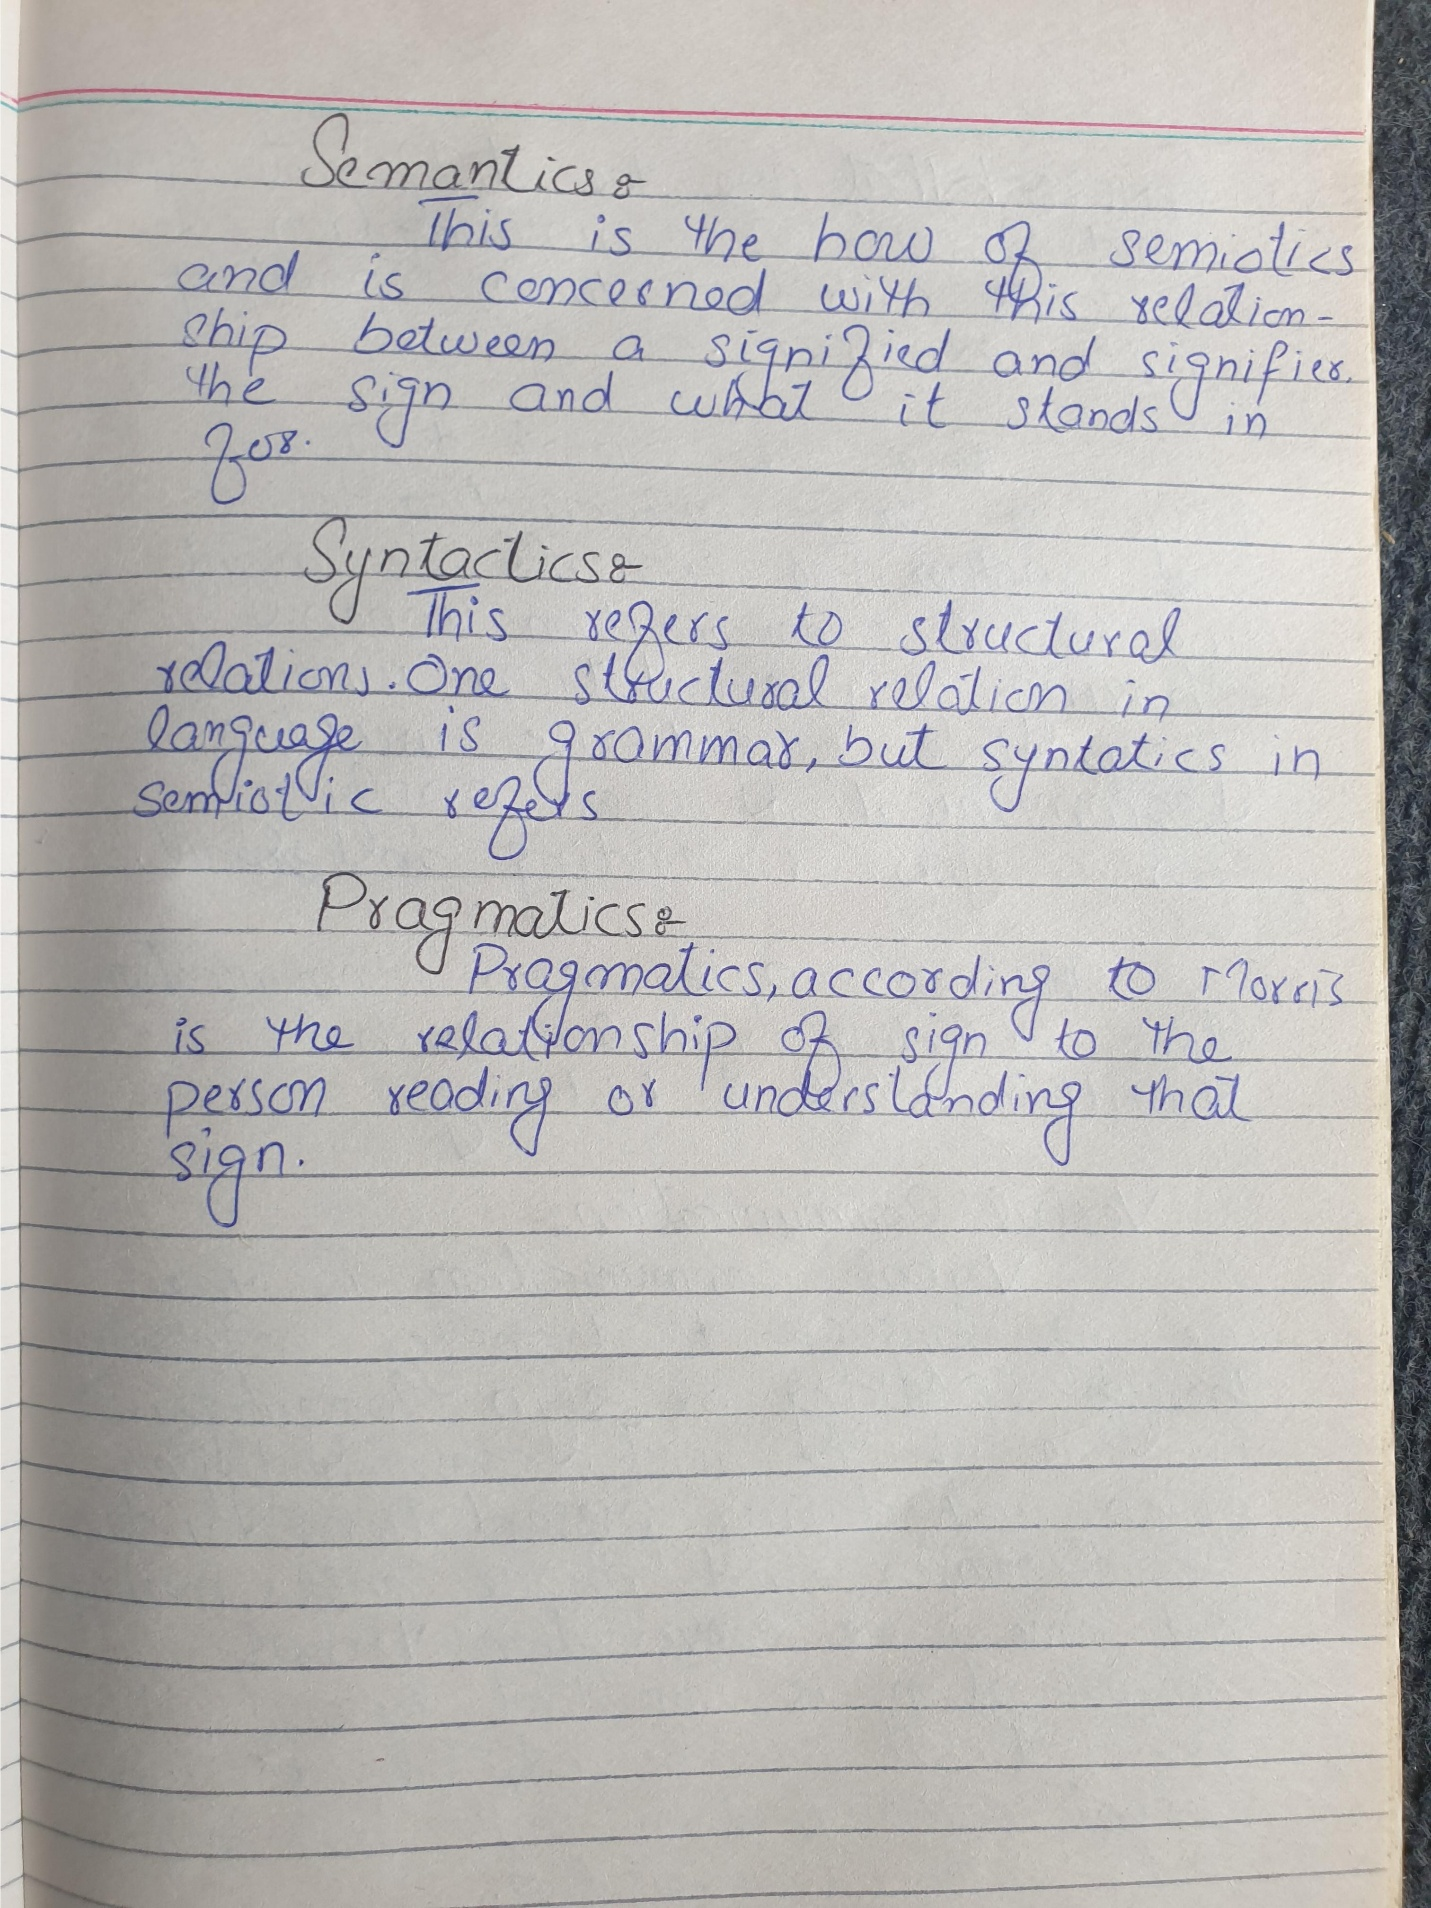 Semantics:
This is the how of semiotics
and is concerned with this relation-
ship between a signified and signifier.
the sign and what it stands in
for.
Syntactics:
This refers to structural
relations. One structural relation in
language is grammar, but syntatics in
semiotic refers
Pragmatics:
Pragmatics, according to Morris
is the relationship of sign to the
person reading or understanding that
sign.